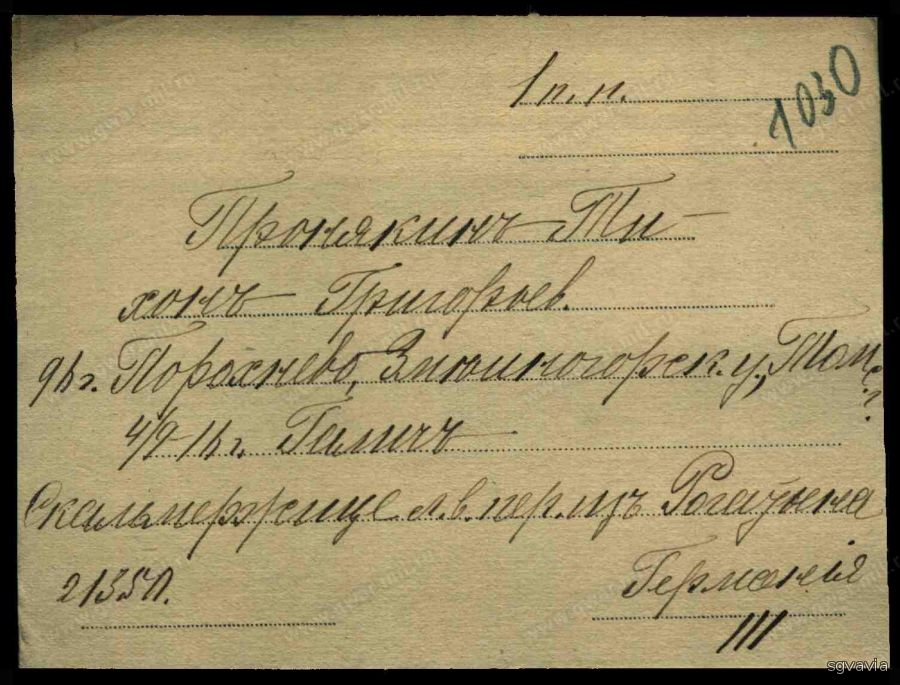 1 п. н.
1030
Пронякинъ Ти-
хонъ Григорьев.
Порохнево, Змеиногорск. у., Том.
с. г.
4/9 1 г. Галичъ
Скальмержице л. в. пер. изъ Рогауэна
21350.
Германія
III
sgvavia